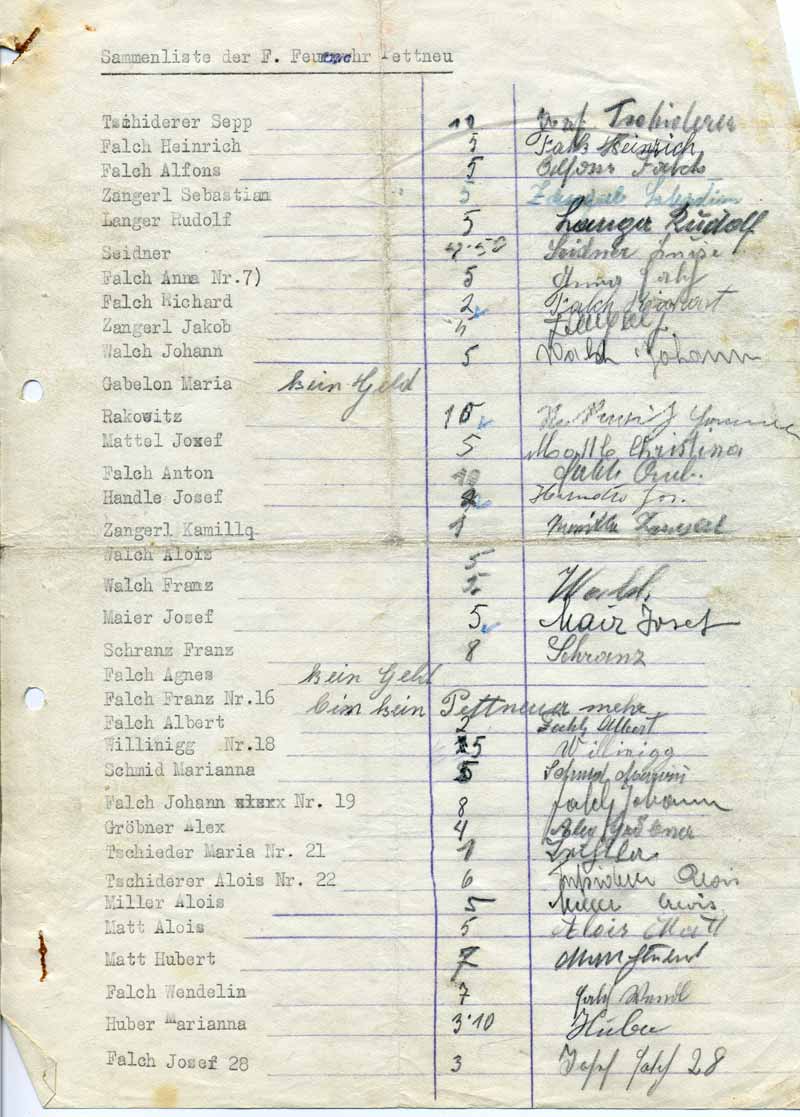 Sammenliste der F. Feuerwehr Pettneu
Tschiderer Sepp 10 Tschiderer
Falch Heinrich 5 Falch Heinrich
Falch Alfons 5 Alfons Falch
Zangerl Sebastian 5
Langer Rudolf 5 Langer Rudolf
Seidner 2.50 Seidner
Falch Anna Nr.7) 5 Anna Falch
Falch Richard 2 Falch
Zangerl Jakob 5
Walch Johann 5 Walch Johann
Gabelon Maria kein Geld
Rakowitz 10
Mattel Josef 5 Christina
Falch Anton 10
Handle Josef 2 Jos.
Zangerl Kamillq 1 Zangerl
Walch Alois 5
Walch Franz 5 Walch
Maier Josef 5 Mair Josef
Schranz Franz 8 Schranz
Falch Agnes kein Geld
Falch Franz Nr.16 Bin kein Pettneuer mehr
Falch Albert 2 Falch Albert
Willinigg Nr.18 5 Willinigg
Schmid Marianna 5 Schmid
Falch Johann xxxxx Nr. 19 8 Falch Johann
Gröbner Alex 4 Alex Gröbner
Tschieder Maria Nr. 21 1
Tschiderer Alois Nr. 22 6 Tschiderer Alois
Miller Alois 5 Alois
Matt Alois 5 Alois Matt
Matt Hubert 7
Falch Wendelin 7 Falch
Huber Marianna 3.10 Huber
Falch Josef 28 3 Josef Falch 28